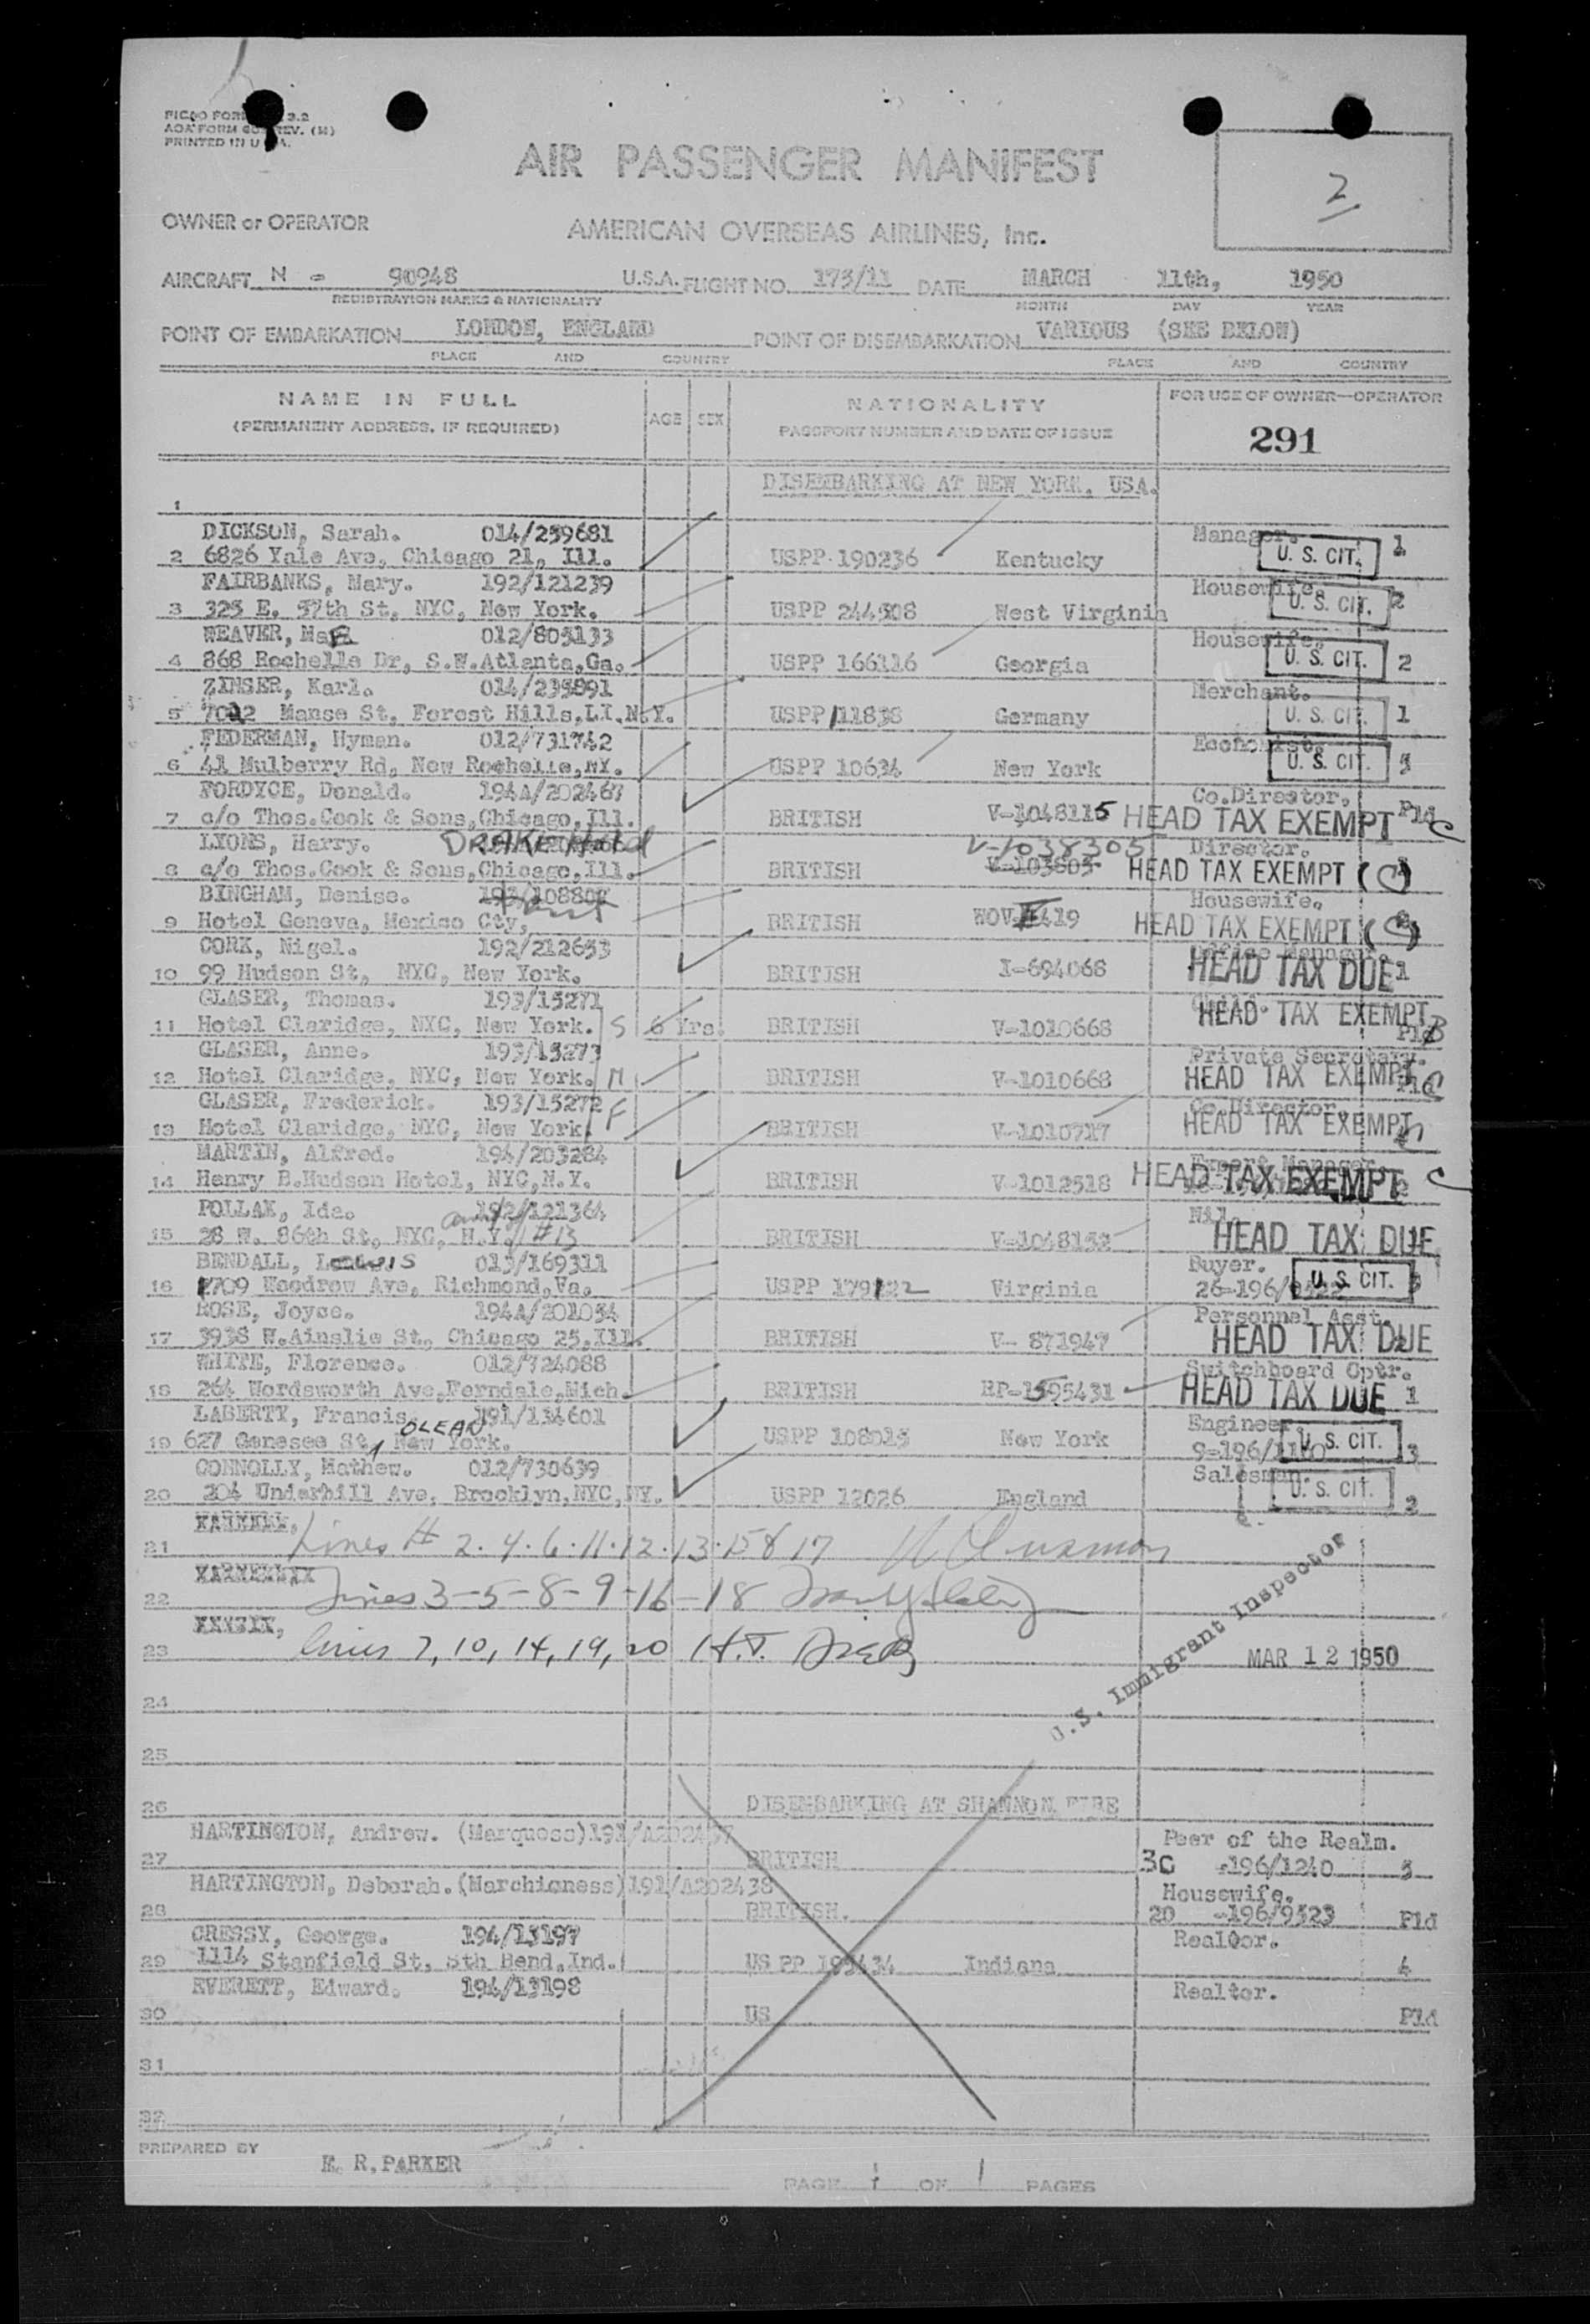 PICAO FORM 3.2
AOA FORM REV. (M)
PRINTED IN U.S.A.
AIR PASSENGER MANIFEST
2
OWNER or OPERATOR AMERICAN OVERSEAS AIRLINES, Inc.
AIRCRAFT N - 90948 U.S.A. FLIGHT NO. 175/11 DATE MARCH 11th, 1950
REGISTRATION MARKS & NATIONALITY MONTH DAY YEAR
POINT OF EMBARKATION LONDON, ENGLAND POINT OF DISEMBARKATION VARIOUS (SEE BELOW)
PLACE AND COUNTRY PLACE AND COUNTRY
NAME IN FULL AGE SEX NATIONALITY FOR USE OF OWNER—OPERATOR
(PERMANENT ADDRESS, IF REQUIRED) PASSPORT NUMBER AND DATE OF ISSUE 291
DISEMBARKING AT NEW YORK, USA.
1
DICKSON, Sarah. 014/259681 Manager. 1
2 6826 Yale Ave, Chicago 21, Ill. USPP 190236 Kentucky U. S. CIT.
FAIRBANKS, Mary. 192/121239 Housewife.
3 325 E. 57th St, NYC, New York. USPP 244508 West Virginia U. S. CIT. 2
WEAVER, 012/805133 Housewife.
4 868 Rochelle Dr, S.W.Atlanta,Ga. USPP 166116 Georgia U. S. CIT. 2
ZINSER, Karl. 014/235891 Merchant.
5 Manse St, Forest Hills,LI.N.Y. USPP 11838 Germany U. S. CIT. 1
FEDERMAN, Hyman. 012/731742 Economist.
6 41 Mulberry Rd, New Rochelle,NY. USPP 10634 New York U. S. CIT. 3
FORDYCE, Donald. 194A/202467 Co.Director.
7 c/o Thos.Cook & Sons,Chicago,Ill. BRITISH V-1048115 HEAD TAX EXEMPT Pld C
LYONS, Harry. DRAKE Hotel V-1038305 Director.
8 c/o Thos.Cook & Sons,Chicago,Ill. BRITISH V-103805 HEAD TAX EXEMPT (C)
BINGHAM, Denise. Housewife.
9 Hotel Geneva, Mexico Cty, BRITISH HEAD TAX EXEMPT (C)
CORK, Nigel. 192/212653 Office Manager.
10 99 Hudson St, NYC, New York. BRITISH I-694068 HEAD TAX DUE 1
GLASER, Thomas. 193/15271
11 Hotel Claridge, NYC, New York. S 6 Yrs. BRITISH V-1010668 HEAD TAX EXEMPT
GLASER, Anne. 193/15273 Private Secretary.
12 Hotel Claridge, NYC, New York. M BRITISH V-1010668 HEAD TAX EXEMPT C
GLASER, Frederick. 193/15272 Co.Director.
13 Hotel Claridge, NYC, New York. F BRITISH V-1010717 HEAD TAX EXEMPT
MARTIN, Alfred. 194/203284 Export Manager.
14 Henry B.Hudson Hotel, NYC,N.Y. BRITISH V-1012518 HEAD TAX EXEMPT C
POLLAK, Ida. 192/121364 Nil.
15 28 W. 86th St, NYC, N.Y. aunt of #13 BRITISH V-1048152 HEAD TAX DUE
BENDALL, Lewis 013/169311 Buyer.
16 Woodrow Ave, Richmond,Va. USPP 179122 Virginia 26-196/ U. S. CIT.
ROSE, Joyce. 194A/201054 Personnel Asst.
17 3938 W.Ainslie St, Chicago 25.Ill. BRITISH V- 871947 HEAD TAX DUE
WHITE, Florence. 012/724088 Switchboard Optr.
18 264 Wordsworth Ave,Ferndale,Mich. BRITISH RP-1595431 HEAD TAX DUE 1
LABERTY, Francis. 191/134601 Engineer.
19 627 Genesee St, OLEAN New York. USPP 108015 New York 9-196/ U. S. CIT. 3
CONNOLLY, Mathew. 012/730639 Salesman.
20 204 Underhill Ave, Brooklyn,NYC,NY. USPP 12026 England U. S. CIT. 2
21 Lines # 2. 4. 6. 11. 12. 13. 15 & 17
22 Lines 3-5-8-9-16-18
23 Lines 7, 10, 14, 19, 20 H.T.
U.S. Immigrant Inspector
MAR 12 1950
24
25
26 DISEMBARKING AT SHANNON EIRE
HARTINGTON, Andrew. (Marquess) Peer of the Realm.
27 BRITISH 30 -196/1240 3
HARTINGTON, Deborah.(Marchioness)191/A202438 Housewife.
28 BRITISH. 20 -196/9323 Pld
CRESSY, George. 194/13197 Realtor.
29 1114 Stanfield St, Sth Bend,Ind. US PP 195434 Indiana 4
EVERETT, Edward. 194/13198 Realtor.
30 US Pld
31
32
PREPARED BY E. R. PARKER
PAGE 1 OF 1 PAGES